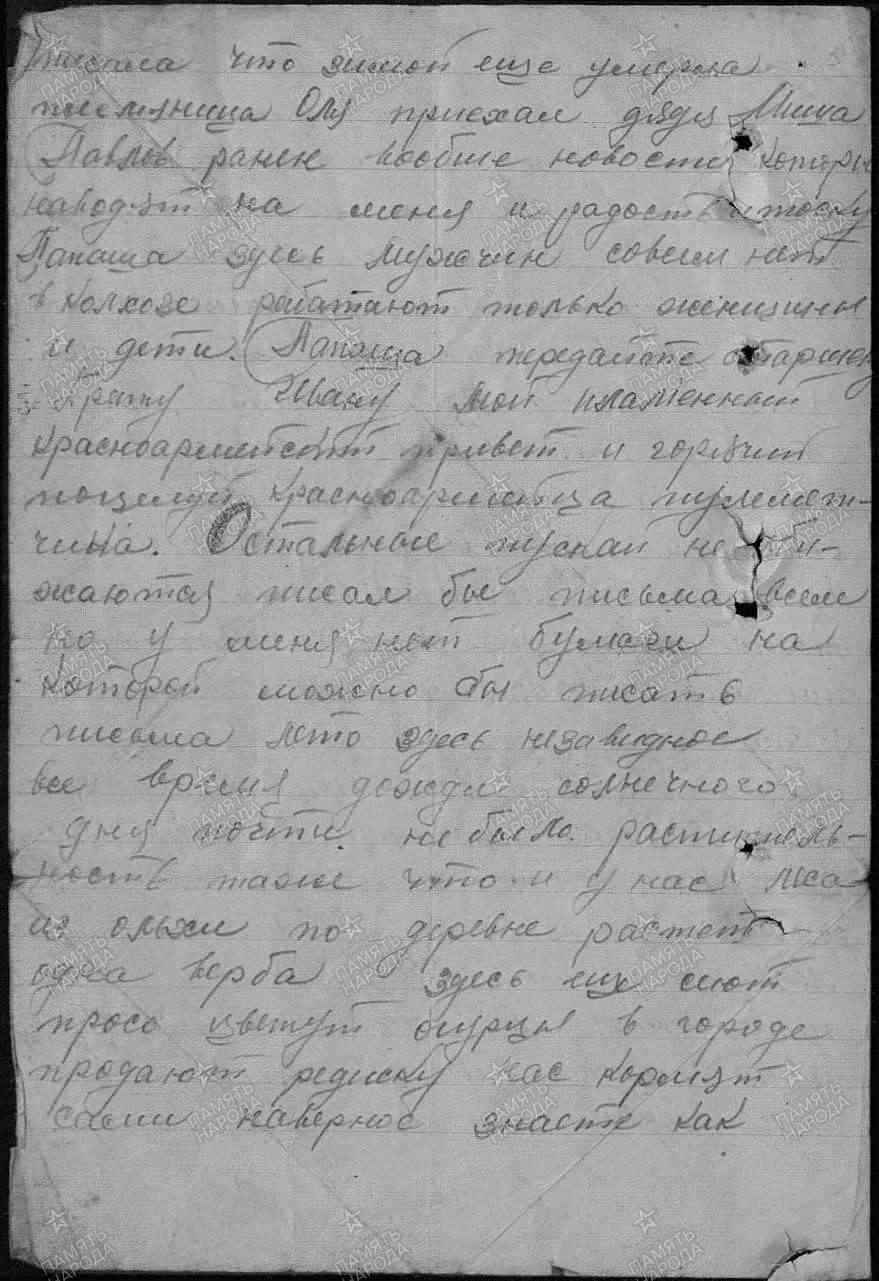 писала что зимой еще умерла
племяница Оля приехал дядя Миша
Павлов ранен вообще новости которые
наводят на меня и радость и тоску
Папаша здесь мужчин совсем нет
в колхозе работают только женщины
и дети. Папаша передайте старшему
брату Ивану мой пламенный
красноармейский привет и горячий
поцелуй красноармейца пулемет-
чика. Остальные пускай не оби-
жаются писал бы письма всем
но у меня нет бумаги на
которой можно бы писать
письма лето здесь незавидное
все время дожди солнечного
дня почти не было. раститель-
ность таже что и у нас леса
из ольхи по деревне растет
одна верба здесь еще сеют
просо цветут огурцы в городе
продают редиску нас кормят
сами наверное знаете как
ПАМЯТЬ НАРОДА